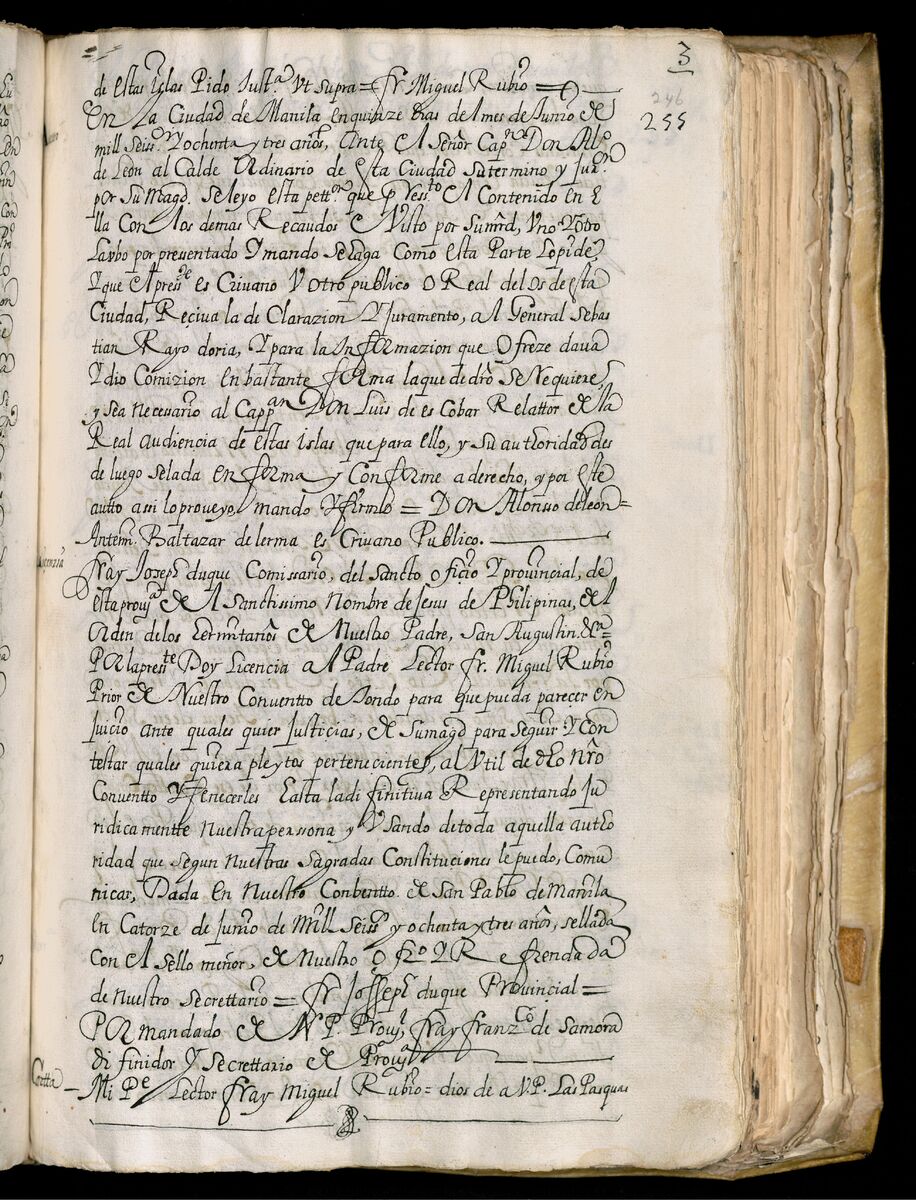 3
246
255
de estas Yslas Pido Just.ª Vt supra = fr Miguel Rubio =
En La Ciudad de Manila en quinze dias del mes de Junio de
mill seiss.os y ochenta y tres años, Ante el Señor Cap.n Don Al.o
de Leon alCalde Ordinario de esta Ciudad su termino y Jur.on
por su Magd. Se leyo esta pett.on que pressto el Contenido en E
lla Con los demas Recaudos e Visto por sumrd, Vno Y otro
Lo hubo por presentado Y mando se haga Como esta Parte lo pide,
Y que el press.te esCrivano V otro publico O Real de los de esta
Ciudad, Reçiva la deClarazion Y Juramento, al General Sebas
tian Rayo doria, Y para la Informazion que Ofreze dava
Y dio Comizion en bastante forma la que de dro se Requiere,
y sea necesario al Capp.an Don Luis de esCobar Relattor de la
Real audiencia de estas islas que para ello, y su authoridad des
de luego se la da en forma y Conforme a derecho, y por este
autto asi lo proveyo, mando Y firmo = Don Alonso de leon =
Antemi. Baltazar de lerma esCrivano Publico.
Licenzia
fray Joseph duque Comissario, del sancto oficio Y provincial, de
esta prov.a del Sanctissimo Nombre de Jesus de Philipinas, del
Orden de los hermitaños de Nuestro Padre, San Augustin. &.a =
Por la presente Doy Licencia al Padre Lector fr. Miguel Rubio
Prior de Nuestro Conventto de Tondo para que pueda parecer en
Juicio ante quales quier Justicias, de sumagd para seguir Y con
testar quales quiera pleytos pertenecientes, al Vtil de dho Nro
Conventto Y fenecerles hasta la difinitiva Representando Ju
ridicamentte nuestra perssona y Vsando de toda aquella autho
ridad que segun nuestras sagradas Constituciones le puedo, Comu
nicar, Dada en Nuestro Conbentto de San Pablo de Manila
en Catorze de Junio de Mill seiss.os y ochenta y tres años, sellada
Con el sello menor, de Nuestro offo Y Refrendada
de nuestro Secrettario = fr Josseph duque Provincial =
Por mandado de N P. Prov.l, fray Franz.co de Samora
difinidor Y Secrettario de Prov.a
Cartta
Mi P.e Lector fray Miguel Rubio = dios de a V.P. Las Pasquas